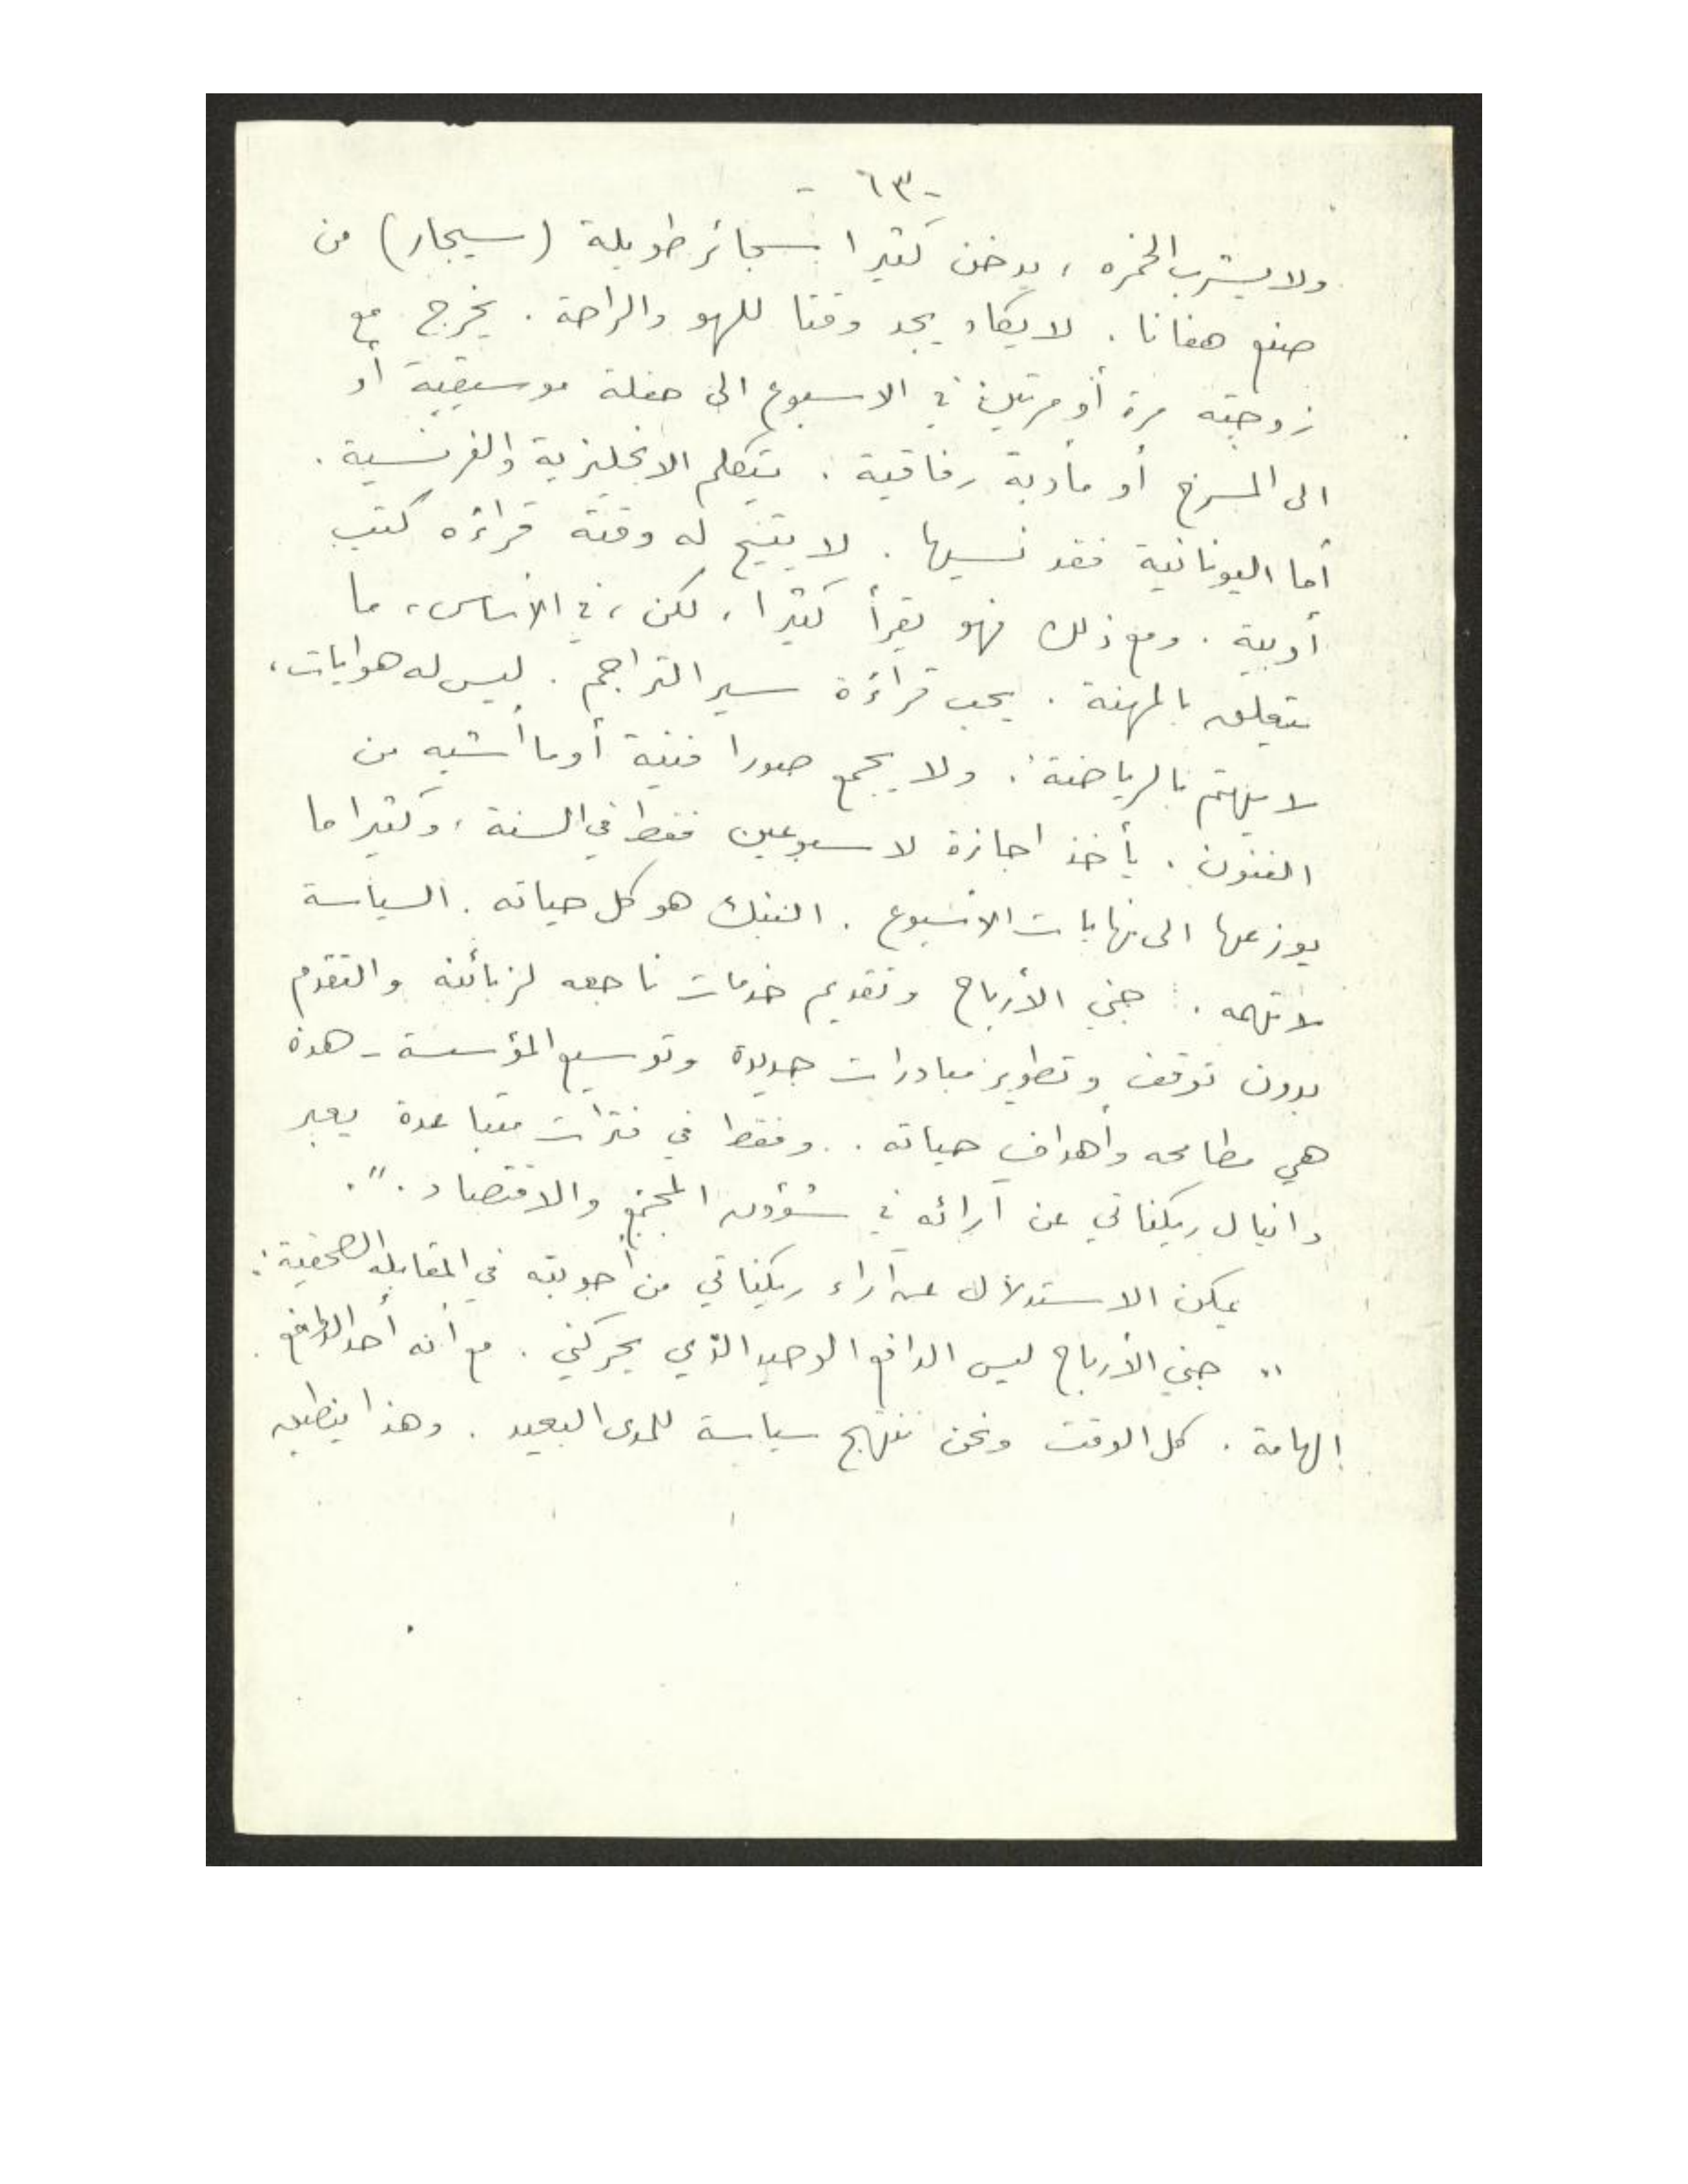 - ٦٣ -
ولا يشرب الخمره ، يدخن كثيرا سجائر طويلة (سيجار) من
صنع هفانا . لا يكاد يجد وقتا للهو والراحة . يخرج مع
زوجته مرة أو مرتين في الاسبوع الى حفلة موسيقية أو
الى المسرح أو مأدبة رفاقية . يتكلم الانجليزية والفرنسية .
أما اليونانية فقد نسيها . لا يتيح له وقته قراءه كتب
أدبية . ومع ذلك فهو يقرأ كثيرا ، لكن ، في الأساس ، ما
يتعلق بالمهنة . يحب قراءة سير التراجم . ليس له هوايات ،
لا يهتم بالرياضة . ولا يجمع صورا فنية أو ما أشبه من
الفنون . يأخذ اجازة لاسبوعين فقط في السنة ، وكثيرا ما
يوزعها الى نهايات الأسبوع . البنك هو كل حياته . السياسة
لا تهمه . جني الأرباح وتقديم خدمات ناجعه لزبائنه والتقدم
بدون توقف وتطوير مبادرات جديدة وتوسيع المؤسسة - هذة
هي مطامحه وأهداف حياته . . وفقط في فترات متباعدة يعبر
دانيال ريكناتي عن آرائه في شؤون المجتمع والاقتصاد . " .
يمكن الاستدلال عن آراء ريكناتي من أجوبته في المقابله الصحفية :
" جني الأرباح ليس الدافع الوحيد الذي يحركني . مع أنه أحد الدوافع
الهامة . كل الوقت ونحن ننهج سياسة للمدى البعيد . وهذا ينطبق